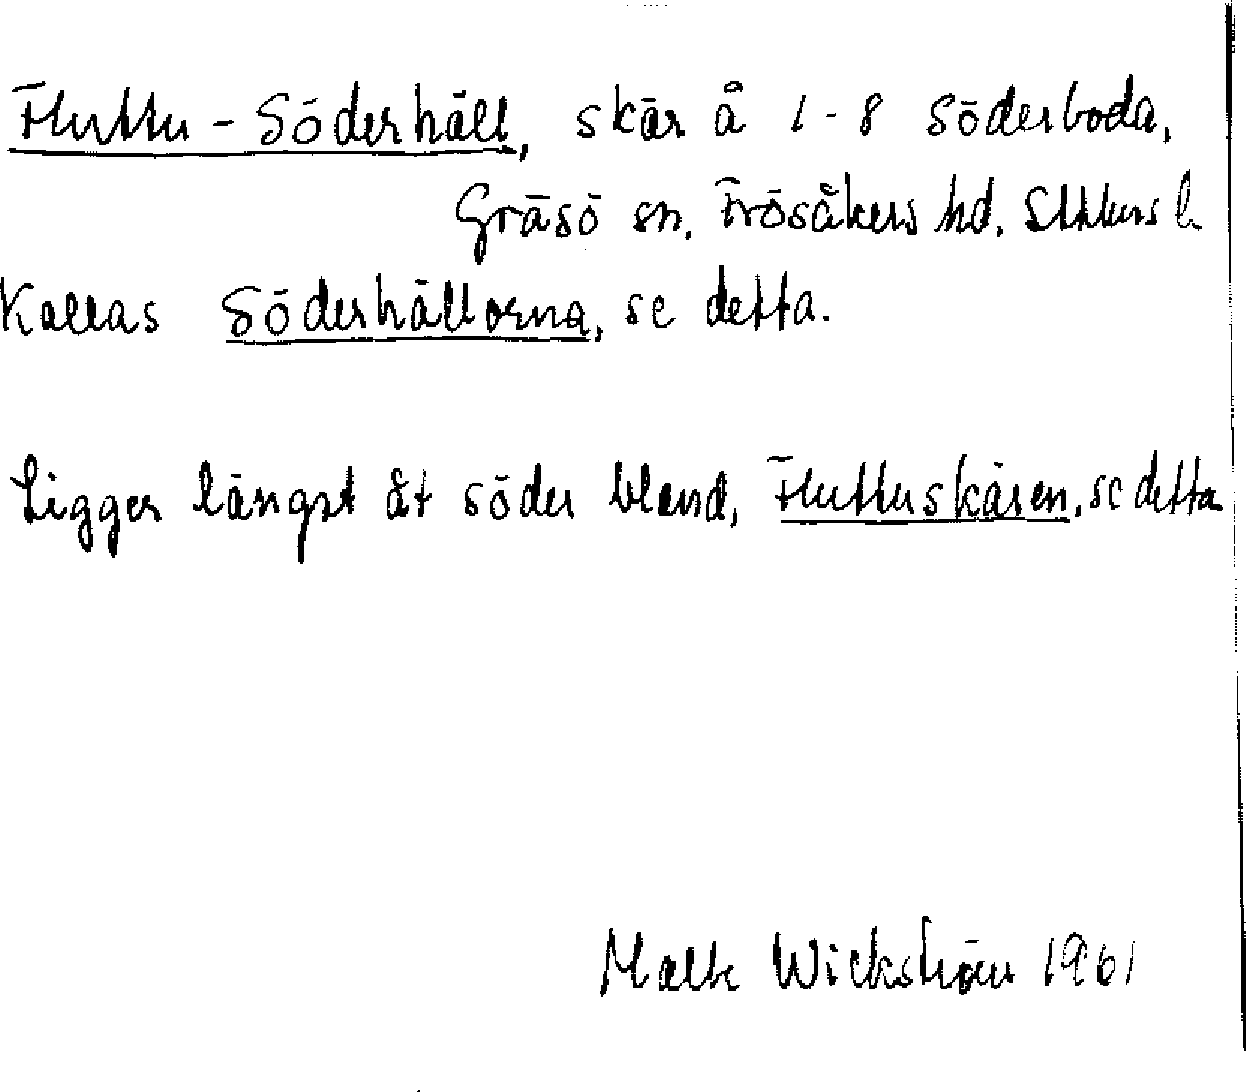 Fluttu-Söderhäll, skär å 1-8 Söderboda,
Gräsö sn, Frösåkers hd, Sthlms l.
Kallas Söderhällorna, se detta.
Ligger längst åt söder bland, Fluttuskären, se detta
Malte Wickström 1961